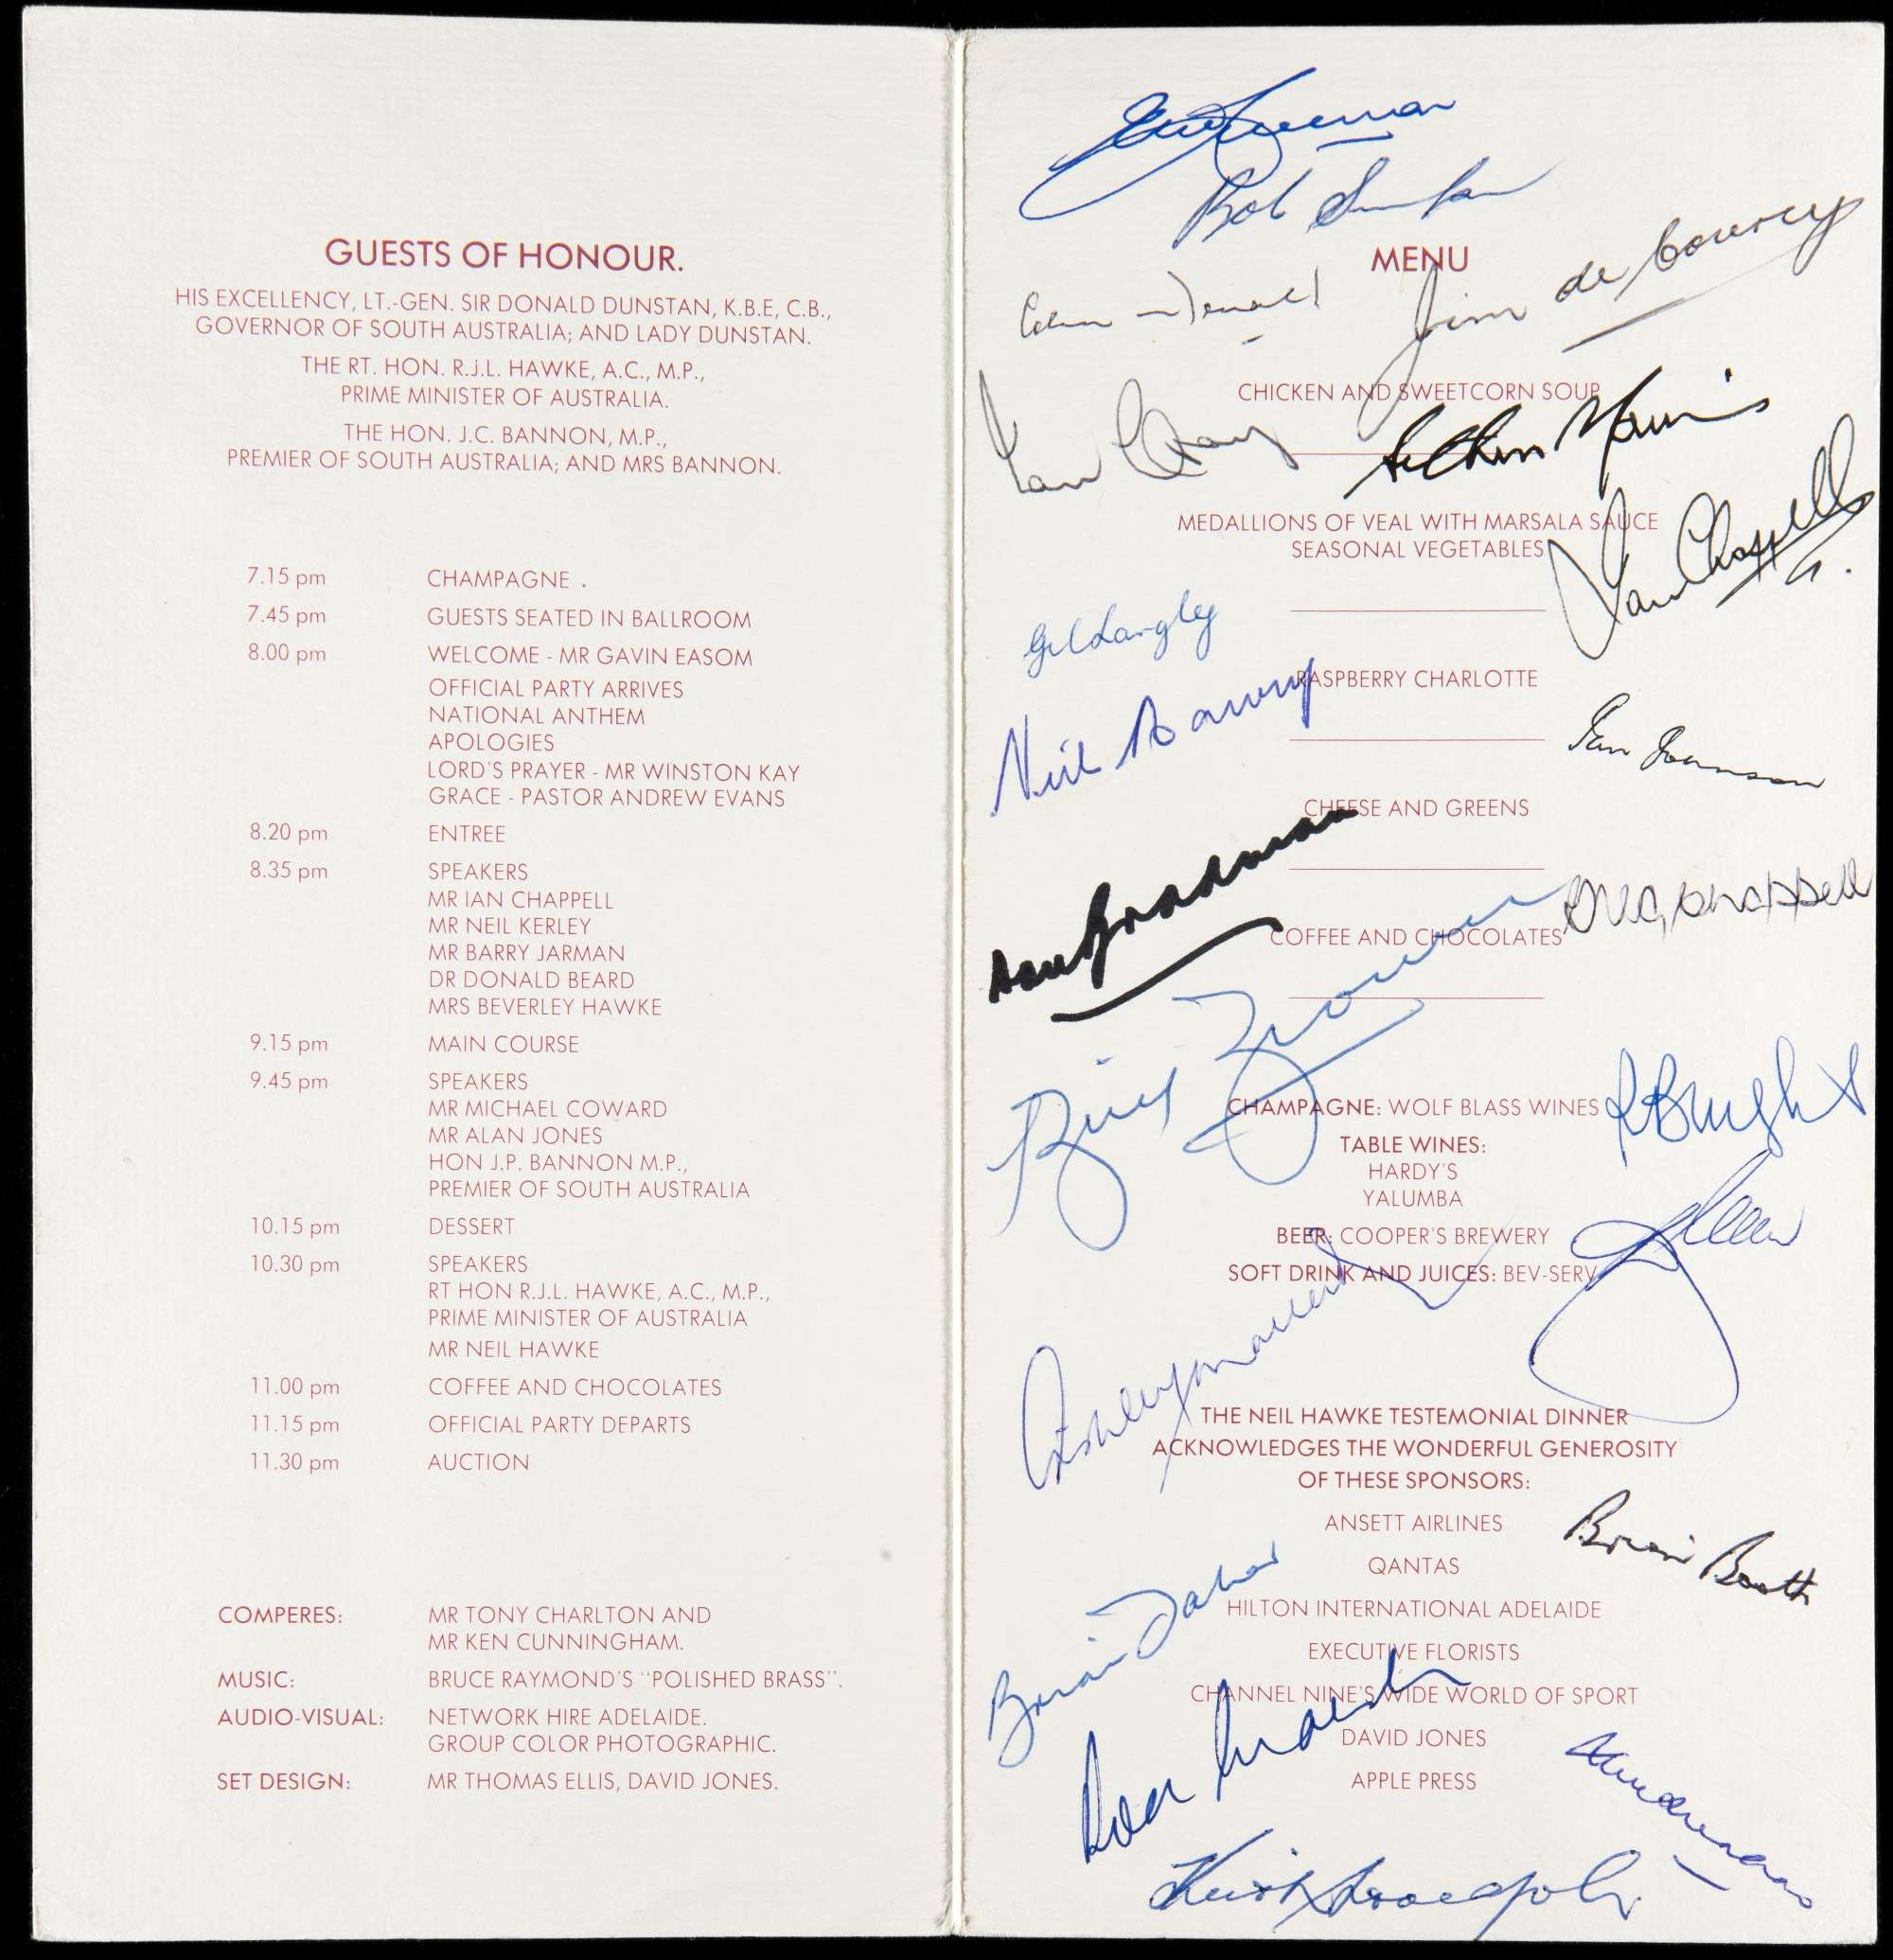 GUESTS OF HONOUR.
HIS EXCELLENCY, LT.-GEN. SIR DONALD DUNSTAN, K.B.E, C.B.,
GOVERNOR OF SOUTH AUSTRALIA; AND LADY DUNSTAN.
THE RT. HON. R.J.L. HAWKE, A.C., M.P.,
PRIME MINISTER OF AUSTRALIA.
THE HON. J.C. BANNON, M.P.,
PREMIER OF SOUTH AUSTRALIA; AND MRS BANNON.
7.15 pm CHAMPAGNE .
7.45 pm GUESTS SEATED IN BALLROOM
8.00 pm WELCOME - MR GAVIN EASOM
OFFICIAL PARTY ARRIVES
NATIONAL ANTHEM
APOLOGIES
LORD'S PRAYER - MR WINSTON KAY
GRACE - PASTOR ANDREW EVANS
8.20 pm ENTREE
8.35 pm SPEAKERS
MR IAN CHAPPELL
MR NEIL KERLEY
MR BARRY JARMAN
DR DONALD BEARD
MRS BEVERLEY HAWKE
9.15 pm MAIN COURSE
9.45 pm SPEAKERS
MR MICHAEL COWARD
MR ALAN JONES
HON J.P. BANNON M.P.,
PREMIER OF SOUTH AUSTRALIA
10.15 pm DESSERT
10.30 pm SPEAKERS
RT HON R.J.L. HAWKE, A.C., M.P.,
PRIME MINISTER OF AUSTRALIA
MR NEIL HAWKE
11.00 pm COFFEE AND CHOCOLATES
11.15 pm OFFICIAL PARTY DEPARTS
11.30 pm AUCTION
COMPERES: MR TONY CHARLTON AND
MR KEN CUNNINGHAM.
MUSIC: BRUCE RAYMOND'S "POLISHED BRASS".
AUDIO-VISUAL: NETWORK HIRE ADELAIDE.
GROUP COLOR PHOTOGRAPHIC.
SET DESIGN: MR THOMAS ELLIS, DAVID JONES.
Bob Simpson
MENU
Jim de Courcy
CHICKEN AND SWEETCORN SOUP
Ian Craig
Arthur Morris
MEDALLIONS OF VEAL WITH MARSALA SAUCE
SEASONAL VEGETABLES
Ian Chappell
Gil Langley
RASPBERRY CHARLOTTE
Neil Harvey
Ian Johnson
CHEESE AND GREENS
Don Bradman
COFFEE AND CHOCOLATES
Bill Brown
CHAMPAGNE: WOLF BLASS WINES
TABLE WINES:
HARDY'S
YALUMBA
BEER: COOPER'S BREWERY
SOFT DRINK AND JUICES: BEV-SERV
Ashley Mallett
THE NEIL HAWKE TESTEMONIAL DINNER
ACKNOWLEDGES THE WONDERFUL GENEROSITY
OF THESE SPONSORS:
ANSETT AIRLINES
Brian Booth
QANTAS
Brian Taber
HILTON INTERNATIONAL ADELAIDE
EXECUTIVE FLORISTS
CHANNEL NINE'S WIDE WORLD OF SPORT
DAVID JONES
APPLE PRESS